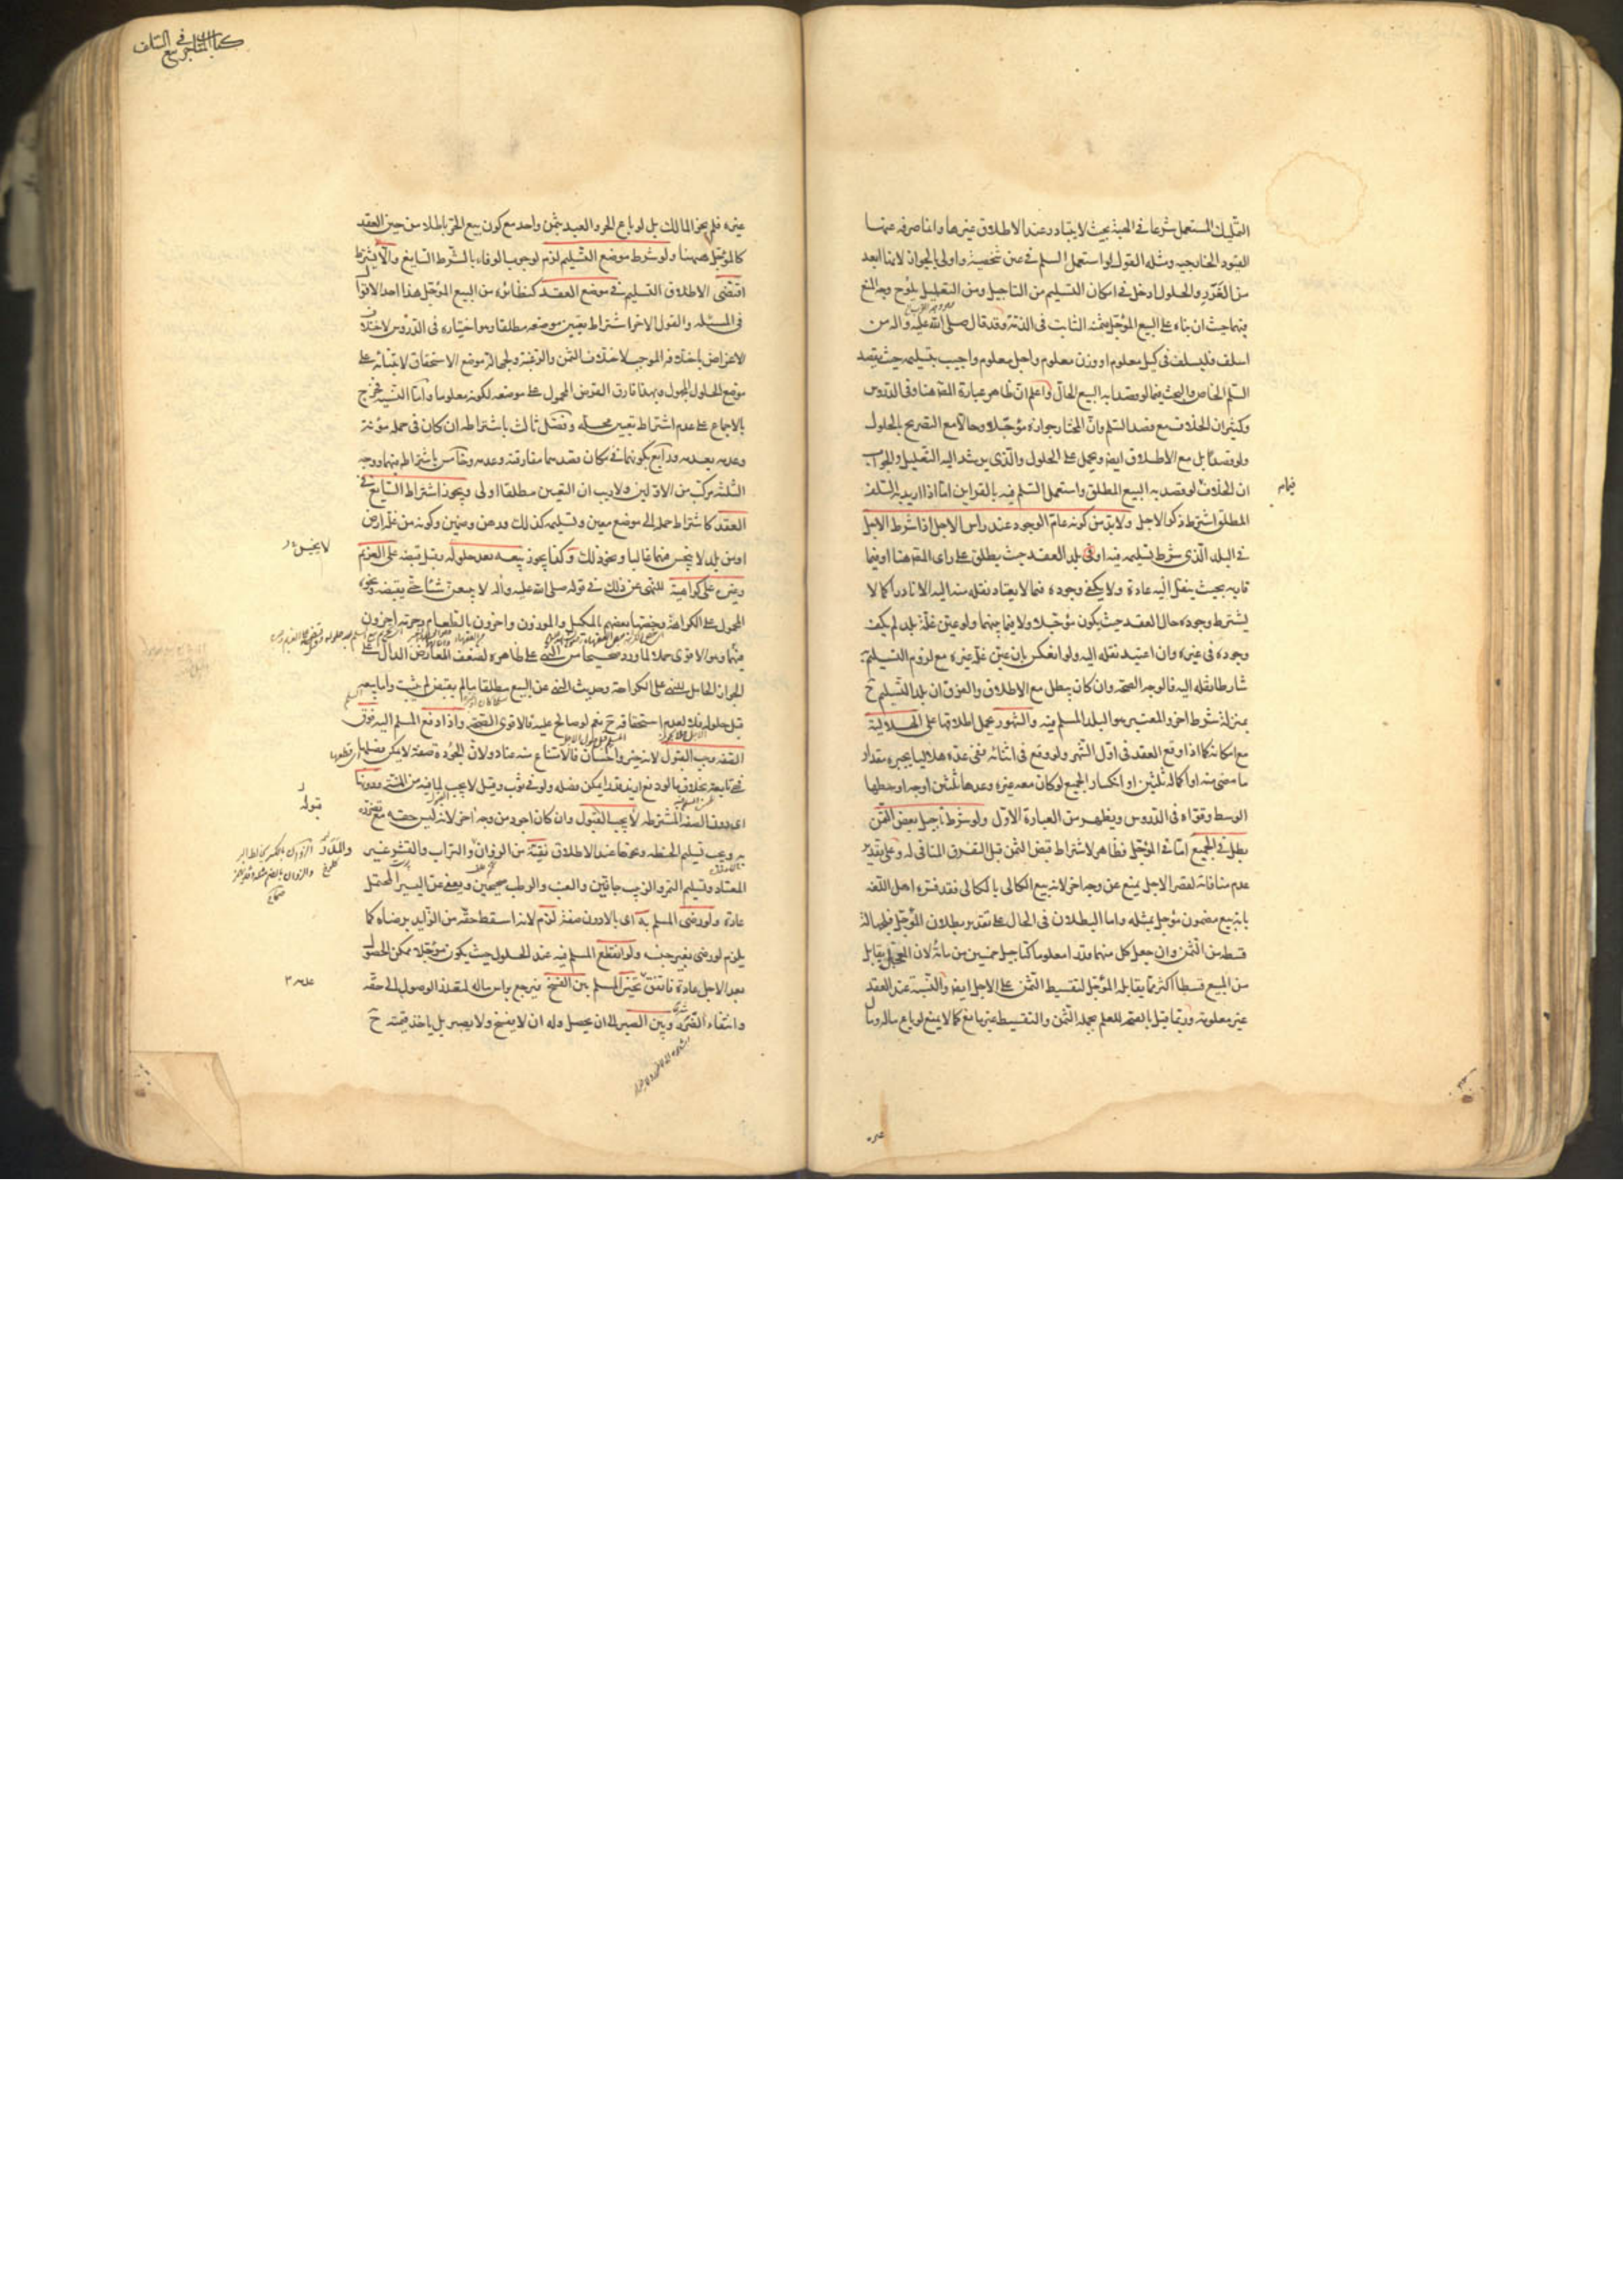 التمليك المستعمل شرعا في الهبة بحيث لا يتبادر عند الاطلاق غيرها وانما صرفه عنها
القيود الخارجيه ومثله القول لو استعمل السلم في عين شخصية واولى بالجواز لانها ابعد
من الغرر والحلول ادخل في امكان التسليم من التاجيل ومن التعليل يلوح وجه المنع
فيهما حيث ان بناءه على البيع المؤجل مثمنه الثابت في الذمة وقد قال صلى الله عليه واله من
اسلف فليسلف في كيل معلوم او وزن معلوم واجل معلوم واجيب بتسليمه حيث يقصد
السلم الخاص والبحث فيما لو قصدا به البيع الحال واعلم ان ظاهر عبارة المصـ هنا وفي الدروس
وكثير ان الخلاف مع قصد السلم وان المختار جوازه مؤجلا وحالا مع التصريح بالحلول
ولو قصدا بل مع الاطلاق ايضا ويحمل على الحلول والذي يرشد اليه التعليل والجواب
فيما م
ان الخلاف لو قصد به البيع المطلق واستعمل السلم فيه بالقراين اما اذا اريد به السلف
المطلق اشترط ذكر الاجل ولا بد من كونه عام الوجود عند راس الاجل اذا شرط الاجل
في البلد الذي شرط تسليمه فيه او في بلد العقد حيث يطلق على راى المصـ هنا او فيما
قاربه بحيث ينقل اليه عادة ولا يكفى وجوده فيما لا يعتاد نقله منه اليه الا نادرا كما لا
يشترط وجوده حال العقد حيث يكون مؤجلا ولا فيما بينهما ولو عين غلة بلد لم يكف
وجوده في غيره وان اعتيد نقله اليه ولو انعكس بان عين غلة غيره مع لزوم التسليم به
شارطا نقله اليه فالوجه الصحة وان كان يبطل مع الاطلاق والفرق ان بلد التسليم ح
بمنزلة شرط اخر والمعتبر هو البلد المسلم فيه والشهور يحمل اطلاقها على الهلالية
مع امكانه كما اذا وقع العقد في اول الشهر ولو وقع في اثنائه ففي عده هلاليا بجبره مقدار
ما مضى منه او اكماله ثلثين او انكسار الجميع لو كان معه غيره وعدها ثلثين اوجه اوسطها
الوسط وقواه في الدروس ويظهر من العبارة الاول ولو شرط تأجيل بعض الثمن
بطل في الجميع اما في المؤجل فظاهر لاشتراط قبض الثمن قبل التفرق المنافى له وعلى تقدير
عدم منافاته لقصر الاجل يمنع عن وجه اخر لانه بيع الكالى بالكالى فقد فسره اهل اللغه
بانه بيع مضمون مؤجل بمثله واما البطلان في الحال على تقدير بطلان المؤجل فلجهالة
قسطه من الثمن وان جعل كل منهما قدرا معلوما كتاجيل خمسين من مائة لان المعجل يقابل
من المبيع قسطا اكثر مما يقابله المؤجل لتقسيط الثمن على الاجل ايضا والنسبة عند العقد
غير معلومة وربما قيل بالصحة للعلم بجملة الثمن والتقسيط غير مانع كما لا يمنع لو باع ماله ومال
غيره
كتاب المتاجر في بيع السلف
غيره فلم يجز المالك بل لو باع الحر والعبد بثمن واحد مع كون بيع الحر باطلا من حين العقد
كالمؤجل هيهنا ولو شرط موضع التسليم لزم لوجوب الوفاء بالشرط السايغ والا يشترط
اقتضى الاطلاق التسليم في موضع العقد كنظائره من البيع المؤجل هذا احد الاقوال
في المسئلة والقول الاخر اشتراط تعيين موضعه مطلقا وهو اختياره في الدروس لاختلاف
الاغراض باختلافه الموجب لاختلاف الثمن والرغبة ولجهالة موضع الاستحقاق لابتنائه على
موضع الحلول المجهول وبهذا فارق القرض المحمول على موضعه لكونه معلوما واما النسيه فخرج
بالاجماع على عدم اشتراط تعيين محله وفصل ثالث باشتراطه ان كان في حمله مؤنة
وعدمه بعدمه ورابع بكونهما في مكان قصدهما مفارقته وعدمه وخامس باشتراطه فيهما ووجه
الثلثة مركب من الاولين ولا ريب ان التعيين مطلقا اولى ويجوز اشتراط السايغ في
العقد كاشتراط حمله الى موضع معين وتسليمه كذلك ورهن وضمين وكونه من غلة ارض
او من بلد لا يخيس فيهما غالبا ونحو ذلك وكذا يجوز بيعه بعد حلوله وقبل قبضه على الغريم
لا يخيس
وغيره على كراهية للنهى عن ذلك في قوله صلى الله عليه واله لا تبيعن شيئا حتى تقبضه ونحوه
المحمول على الكراهة وخصها بعضهم بالمكيل والموزون واخرون بالطعام وحرمه اخرون
فيهما وهو الاقوى حملا لما ورد صحيحا من النهى على ظاهره لضعف المعارض الدال على
الجواز الحامل للنهى على الكراهة وحديث النهى عن البيع مطلقا ما لم يقبض لم يثبت واما بيعه
قبل حلوله فلا لعدم استحقاقه ح نعم لو صالح عليه فالاقوى الصحة واذا دفع المسلم اليه فوق
الصفه وجب القبول لانه خير واحسان فالامتناع منه عناد ولان الجودة صفة لا يمكن فصلها
فهي تابعة بخلاف ما لو دفع ازيد قدرا يمكن فصله ولو في ثوب وقيل لا يجب لما فيه من المنة ودونها
قبوله
اى دون الصفه المشترطه لا يجب القبول وان كان اجود من وجه اخر لانه ليس حقه مع تضرره
به ويجب تسليم الحنطه ونحوها عند الاطلاق نقية من الزوان والتراب والقشر غير
المعتاد وتسليم التمر والزبيب جافين والعنب والرطب صحيحين ويعفى عن اليسير المحتمل
عادة ولو رضى المسلم به اى بالادون صفة لزم لانه اسقط حقه من الزايد برضاه كما
يلزم لو رضى بغير جنسه ولو انقطع المسلم فيه عند الحلول حيث يكون مؤجلا ممكن الحصول
بعد الاجل عادة فاتفق تخير المسلم بين الفسخ فيرجع براس ماله لتعذر الوصول الى حقه
وانتفاء الضرر وبين الصبر الى ان يحصل وله ان لا يفسخ ولا يصبر بل ياخذ قيمته ح